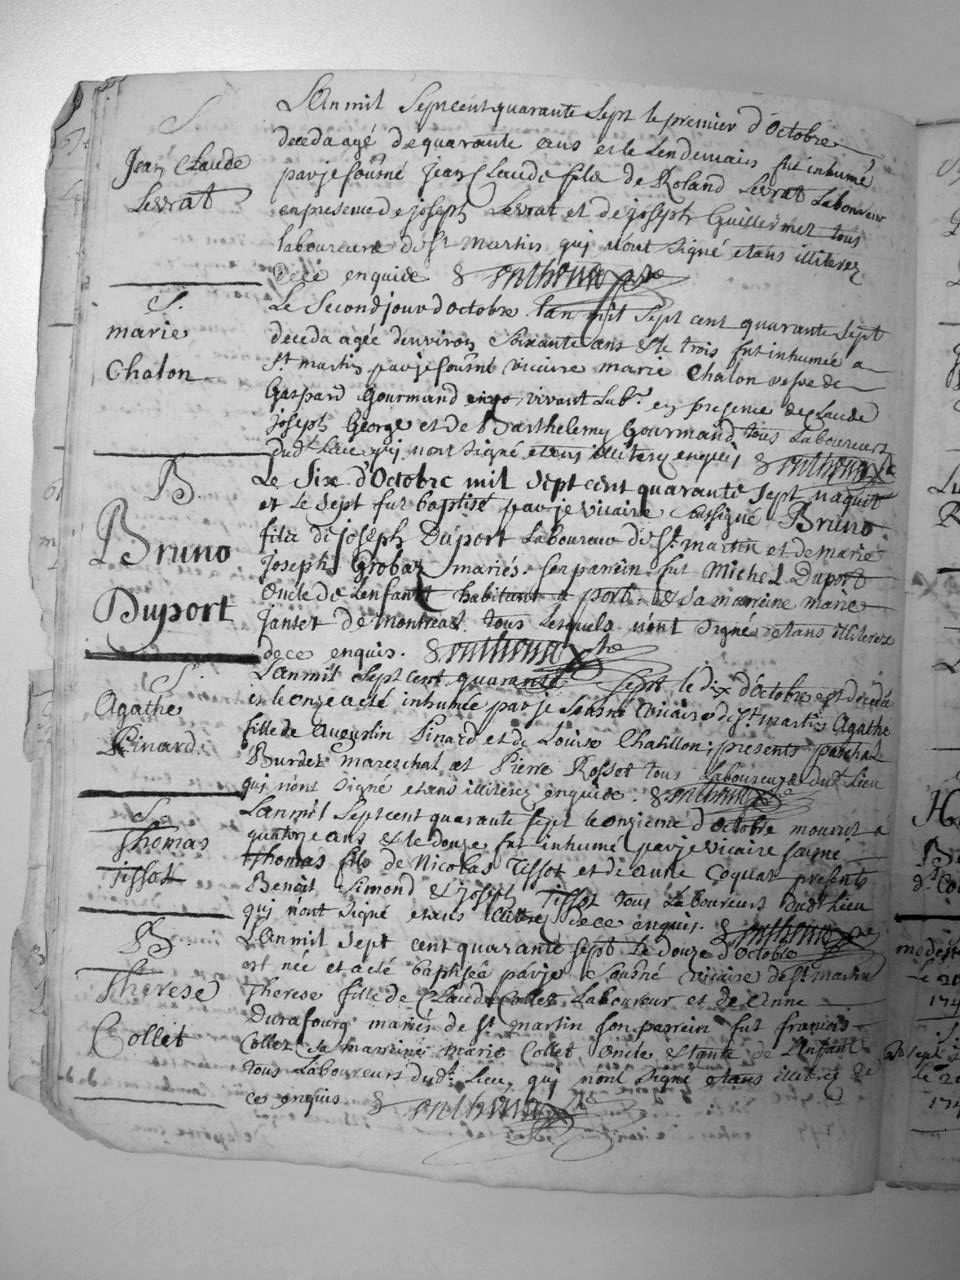 S
Jean Claude
Levrat
L'An mil Sept cent quarante Sept le premier d'Octobre
deceda agé de quarante ans et le Lendemain fut inhumé
par je sousné Jean Claude fils de Roland Levrat Laboureur
en presence de joseph Levrat et de joseph Guillermet tous
laboureurs de St Martin qui n'ont Signé etans illiterez
de ce enquide &
S.
marie
Chalon
Le Second jour d'octobre l'an mil Sept cent quarante Sept
deceda agée d'environ Soixante ans & le trois fut inhumée a
St martin par je sousné vicaire marie Chalon vefve de
Gaspard Gourmand vivant Lab.r en presence de Claude
joseph George et de Barthelemy Gourmand tous Laboureurs
dud.t Lieu qui n'ont Signé etans illiterez enquis &
B.
Bruno
Duport
Le Six d'Octobre mil Sept cent quarante Sept naquit
et le Sept fut baptisé par je vicaire Sousigné Bruno
fils de joséph Duport Laboureur de St martin et de marie
Joseph Grobaz mariés. Son parrein fut Michel Duport
Oncle de L'enfant habitant a port & Sa marreine marie
Jantet de montreal tous Lesquels n'ont Signé etans illiterez
de ce enquis. &
S.
Agathe
Pinard
L'an mil Sept cent quarante Sept le dix d'Octobre est decedé
et le onze a eté inhumée par je Sousné vicaire de St martin Agathe
fille de Augustin Pinard et de Louise Chatillon, presents paschal
Burdet mareschal et Pierre Rosset tous Laboureurs dud.t Lieu
qui n'ont Signé etans illiterez enquide. &
S.
Thomas
Tissot
L'an mil Sept cent quarante Sept le onzieme d'Octobre mourut a
quatorze ans & le douze fut inhumé par je vicaire Sousné
Thomas fils de Nicolas Tissot et de anne Coquat presents
Benoit Simond & joseph Tissot tous Laboureurs dud.t Lieu
qui n'ont Signé etans de ce enquis. &
B.
Therese
Collet
L'An mil Sept cent quarante Sept Le Douze d'Octobre
est née et a eté baptisée par je Sousné vicaire de St martin
Therese fille de Claude Collet Laboureur et de Anne
Durafourg mariés de St martin Son parrein fut franiois
Collet Sa marreine marie Collet Oncle & tante de L'enfant
tous Laboureurs dud.t Lieu, qui n'ont Signé etans illiterez de
ce enquis. &